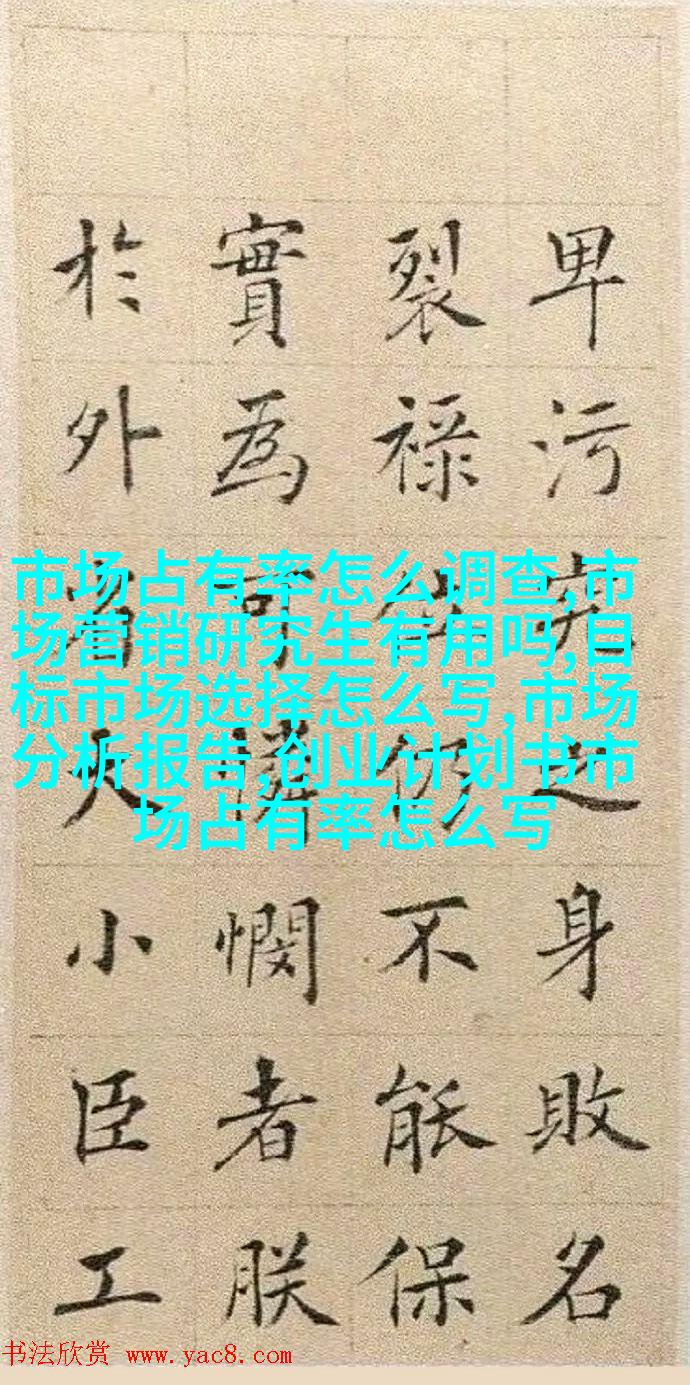 卑污究之身敗名
裂禄位仍不能保
實為可憐憫者朕
於外省大小臣工
市场占有率怎么调查,市
场营销研究生有用吗,目
标市场选择怎么写,市场
分析报告,创业计划书市
场占有率怎么写
书法欣赏 www.yac8.com